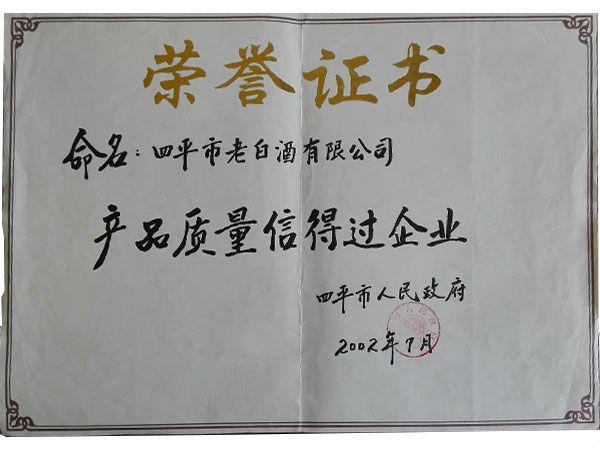 荣誉证书
命名：四平市老白酒有限公司
产品质量信得过企业
四平市人民政府
2002年7月